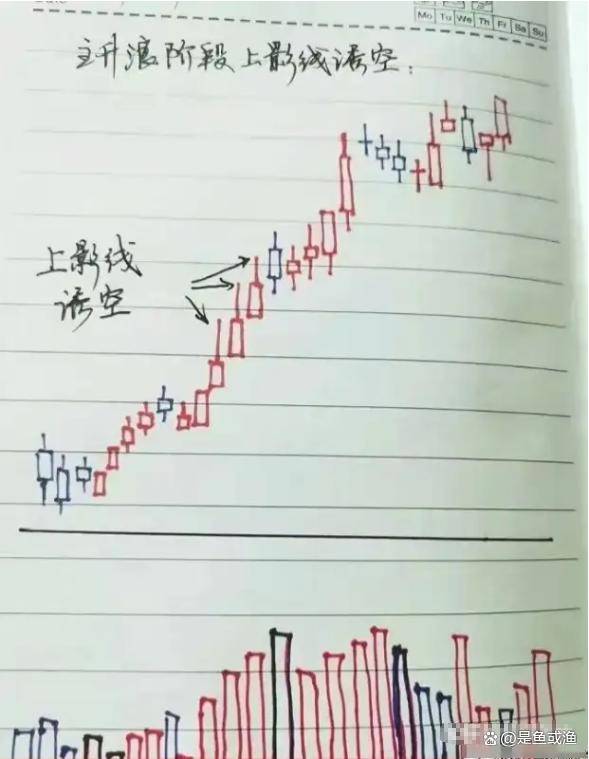 Mo Tu We Th Fr Sa Su
主升浪阶段上影线诱空:
上影线
诱空
@是鱼或渔